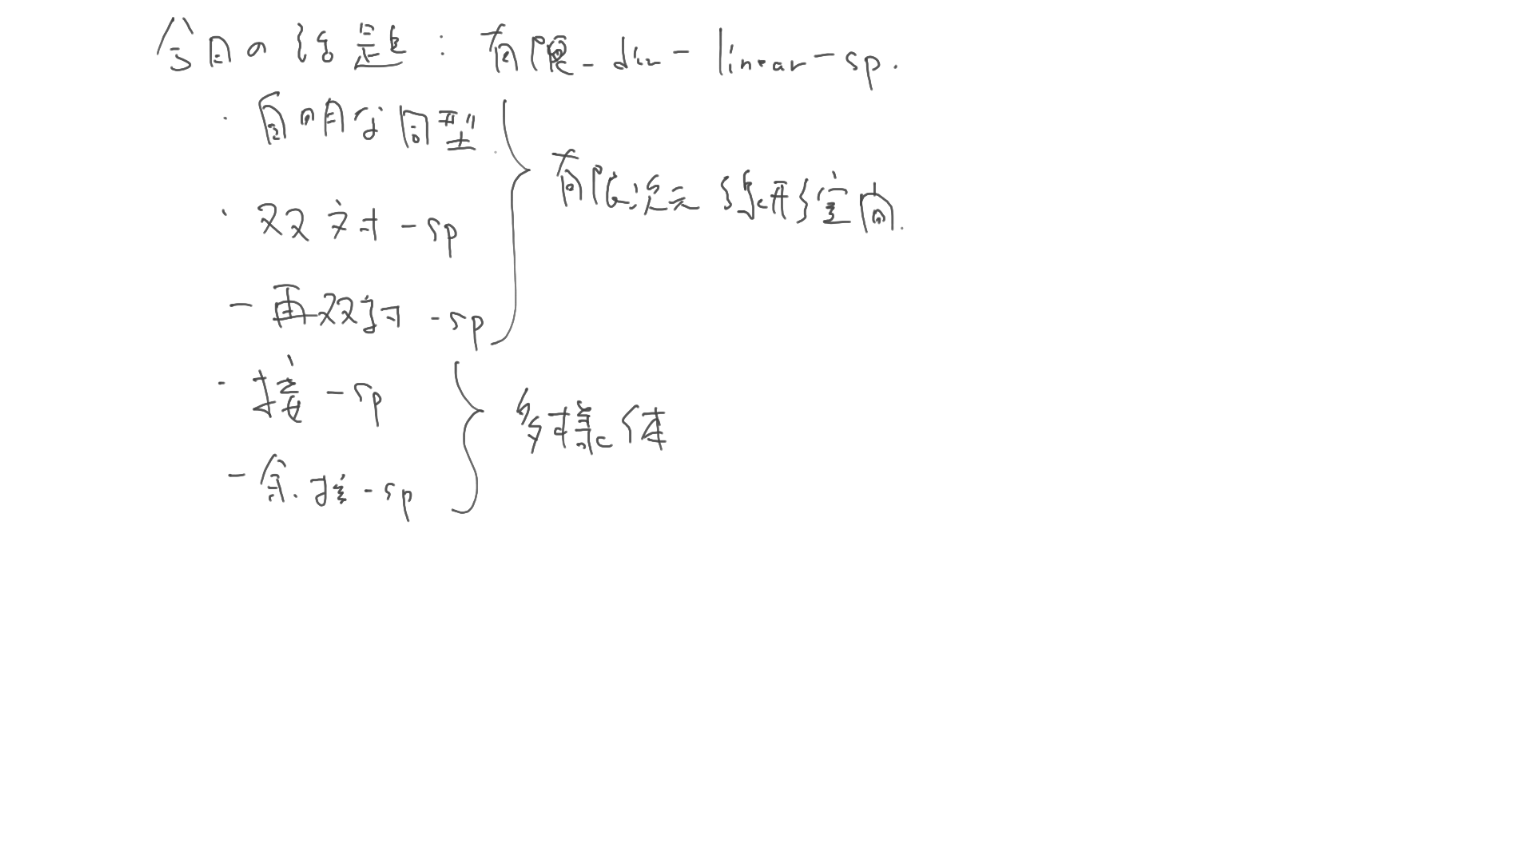 今日の話題 : 有限-dim-linear-sp.
・自明な同型
・双対-sp
-再双対-sp
有限次元線形空間.
・接-sp
-余接-sp
多様体